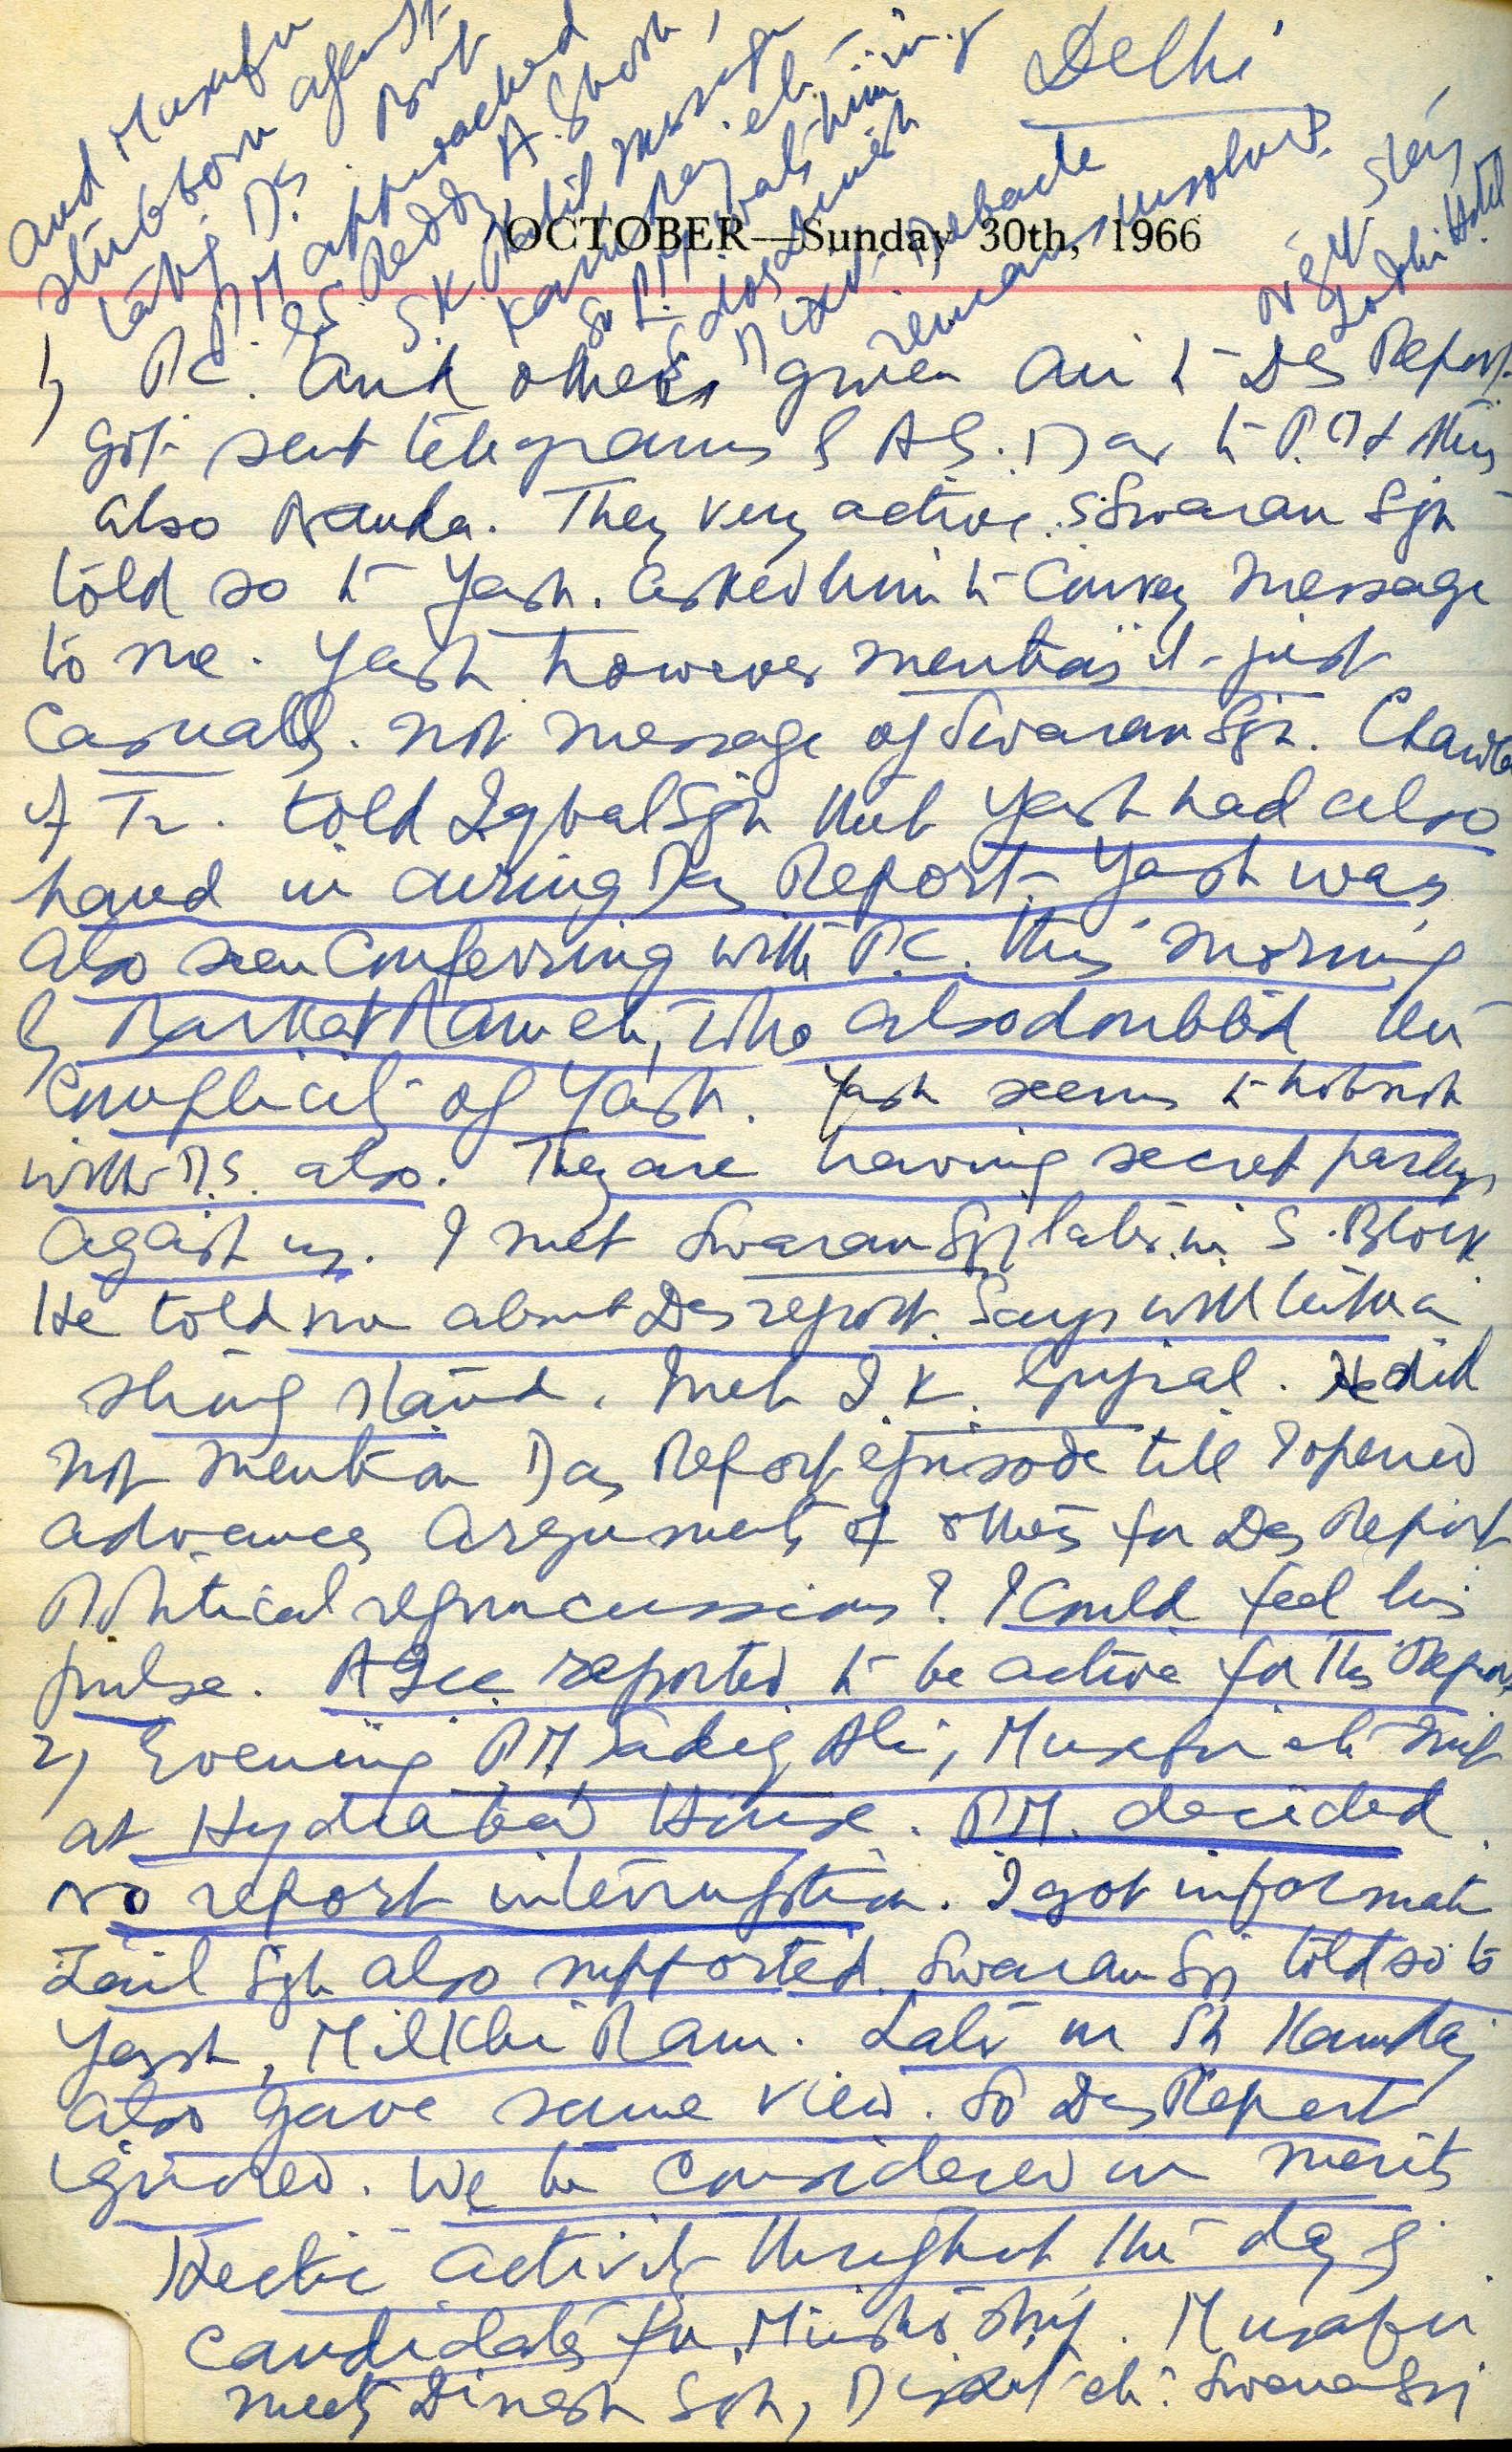 Delhi
OCTOBER—Sunday 30th, 1966
1) P.C. and others given air to Das Report
Got sent telegrams A.S. to P.M. & this
also Nanda. They very active. S Swaran Sgh
told so to Yash. asked him to convey message
to me. Yash however mentions it just
casually. not message of Swaran Sgh. Chawla
of Tr. told Iqbal Sgh that Yash had also
hand in airing Das Report. Yash was
also seen conferring with P.C. this morning
by who also doubted the
complicity of Yash. Yash seems to hobnob
with D.S. also. They are having secret parleys
against us. I met Swaran Sgh later in S. Block
He told me about Das report. Says will take a
strong stand. Met I.K. Gujral. He did
not mention Das Report episode till I opened
advances arguments of others for Das Report
Political repercussions? I could feel his
pulse. reported to be active for this Report
2) Evening PM Sadiq Ali, Musafir etc met
at Hydrabad House. P.M. decided
no report interruption. I got informatn
Zail Sgh also supported. Swaran Sgh told so to
Yash, Milkhi Ram. Later on Sh Kamraj
also gave same view. So Das Report
ignored. We be considered on merits
Hectic activity throughout the day of
candidates for Ministership. Musafir
meets Dinesh Sgh, Dixit etc. Swaran Sgh
and Musafir
stubborn against
taking D.S. But
PM approached
Reddy A. Ghosh,
S.K. Patil message
Kamraj etc.
So P.M. calls him
Dixit. Debacte
remains unsolved.
stay
Lodhi Hotel